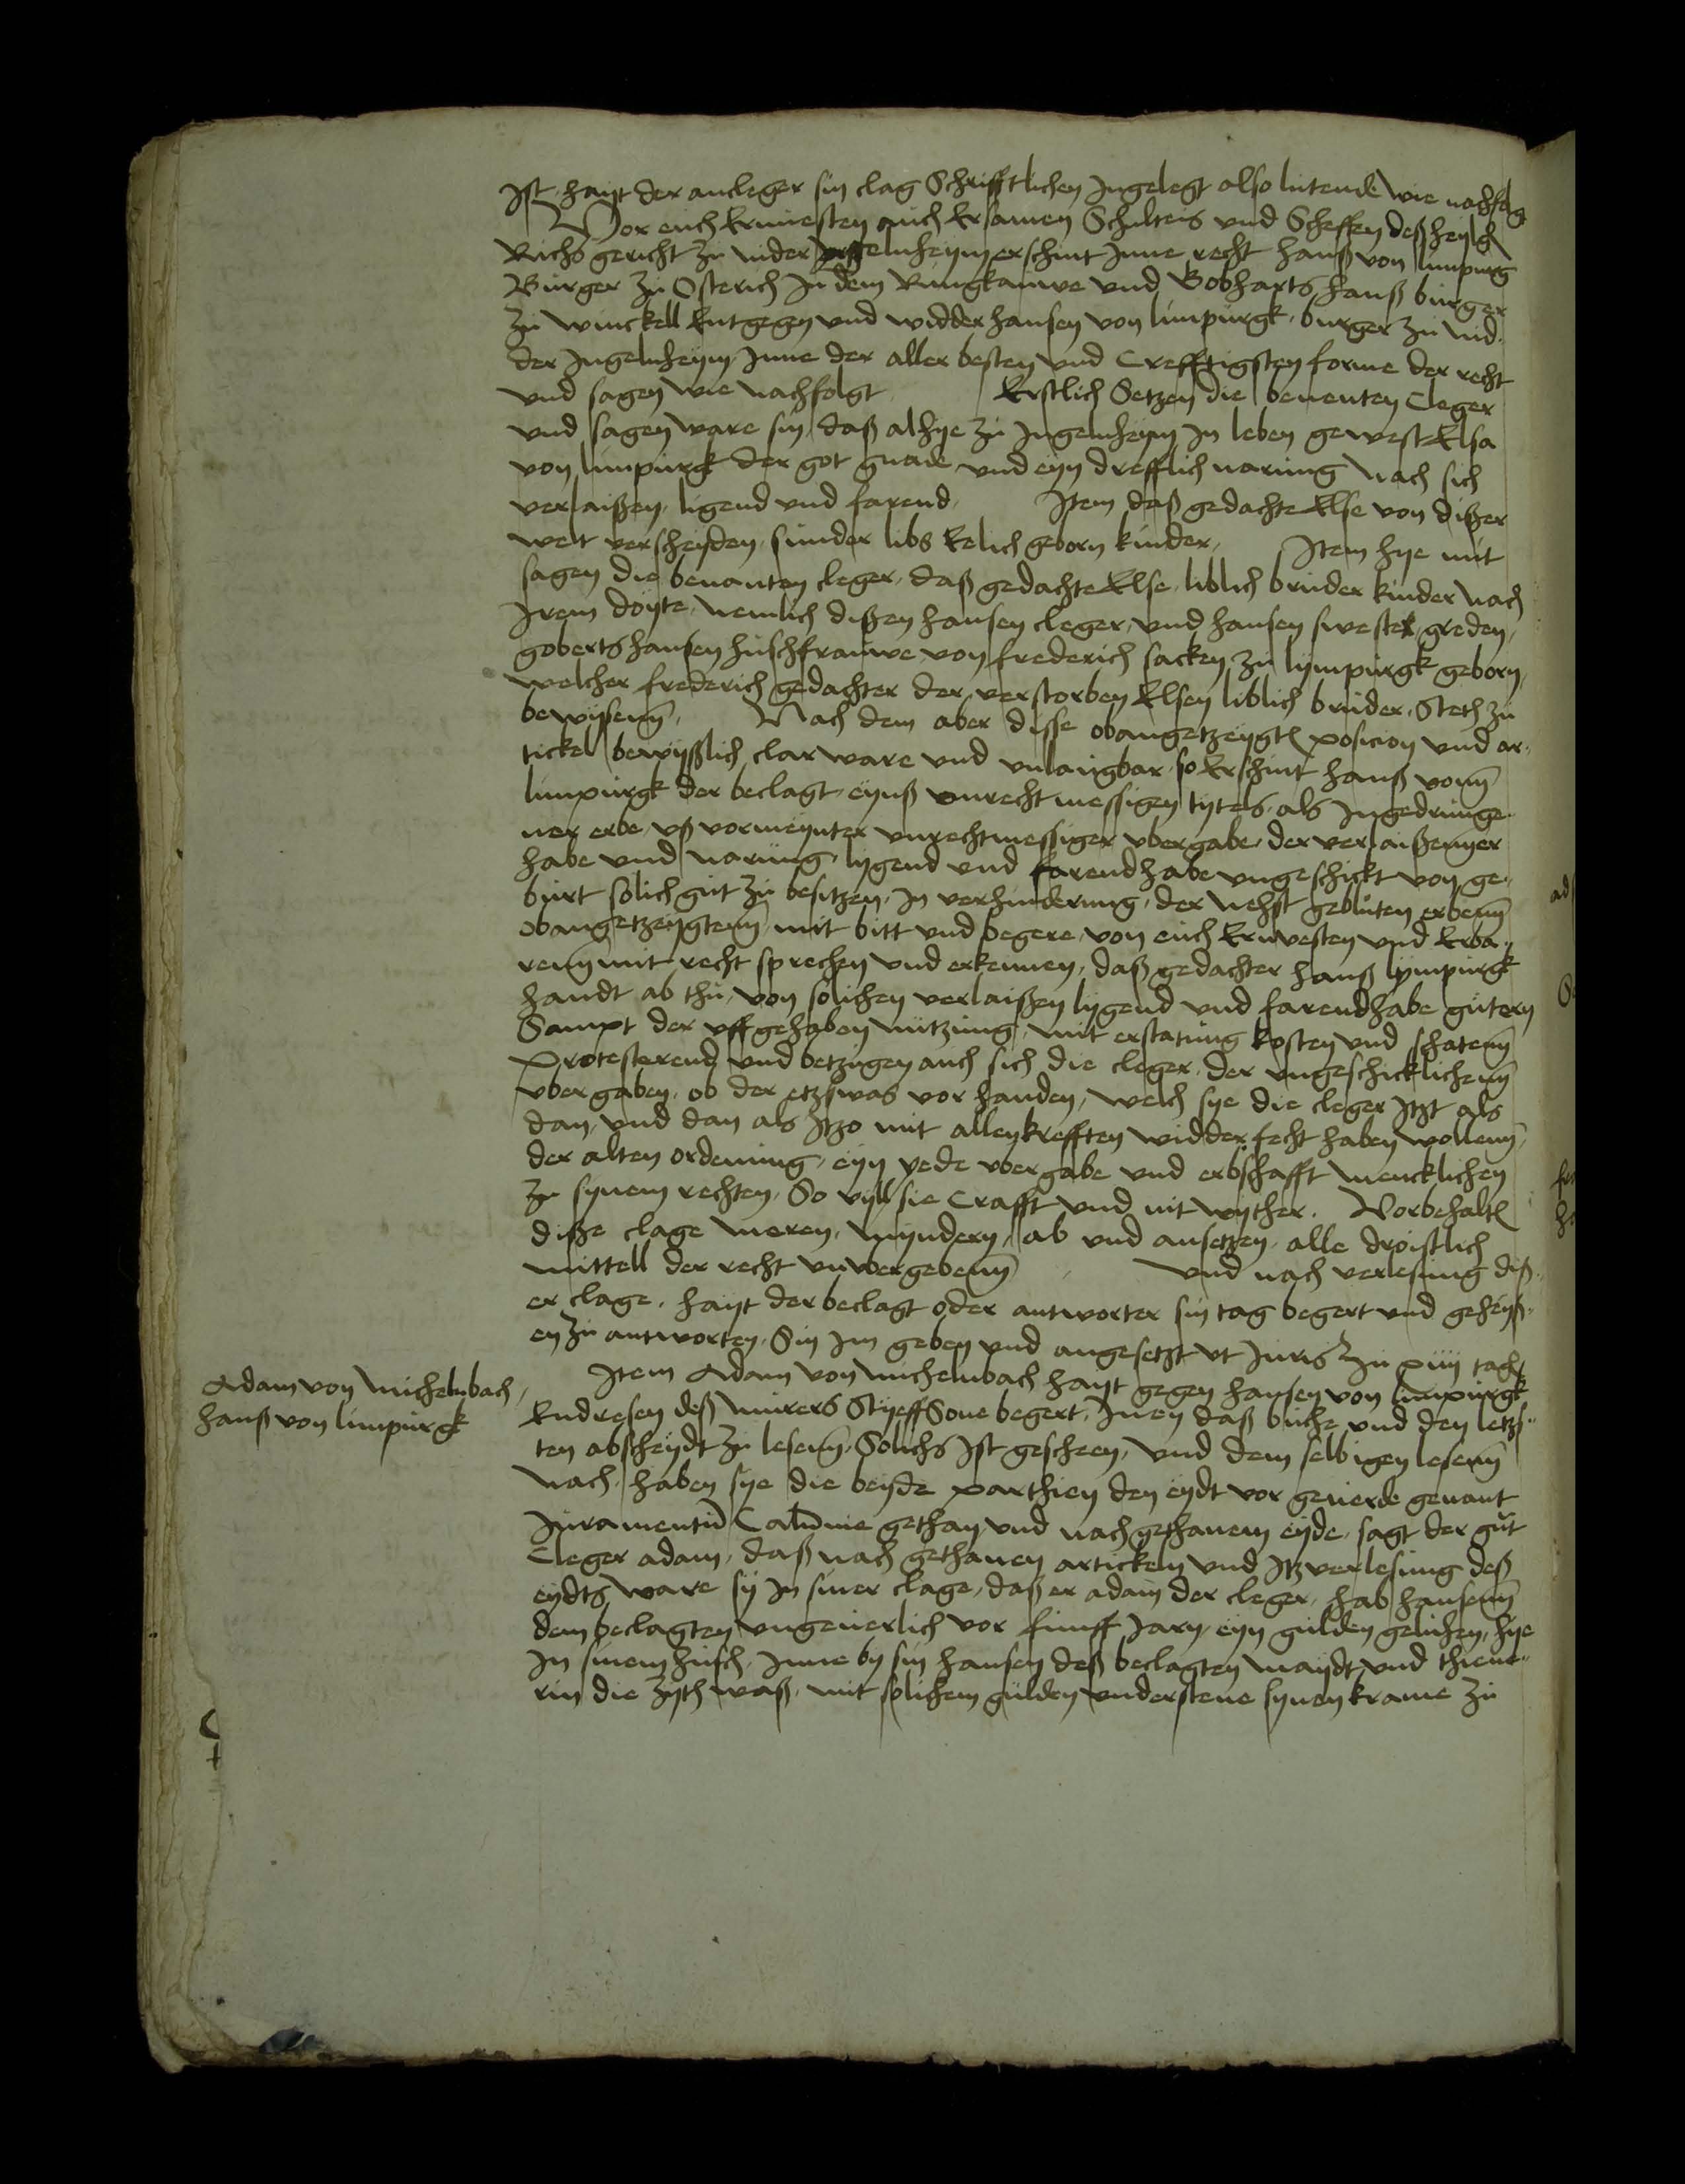 Ist hayt der ancleger sin clag Schrifftlichen Ingelegt also lutende wie nachfolg
Vor euch Ernuesten auch Ersamen Schulteis und Scheffen deß heylg
Richs gericht zu nider Ingelnheym erschint Inne recht hanß von limpurg
Burger zu Osterich In dem Ringkauwe und Gobharts hanß burger
zu winckell Entgegen und widder hansen von limpurgk burger zu nid
der Ingelnheym Inne der aller besten und Crefftigsten forme der recht
und sagen wie nachfolgt Erstlich Setzen die benenten Cleger
und sagen ware sin daß alhye zu Ingelnheym In leben gewest Elsa
von limpurgk der got gnade und eyn drefflich narung nach sich
verlaißen ligend und farend Item daß gedachte Else von dißer
welt verscheyden sunder libs Eelich geborn kinder Item hye mit
sagen die benanten cleger daß gedachte Else liblich bruder kinder nach
Irem doyte nemlich dißen hansen cleger und hansen swester greden
goberts hansen huschfrauwe von frederich sacken zu lympurgk geborn
welcher frederich gedachter der verstorben Elsen liblich bruder Steth zu
bewysenn Nach dem aber disse obangetzeygten posicion und ar
tickel bewyßlich clar ware und unlaugbar so Erschint hanß vonn
limpurgk der beclagt eynß unrechtmessigen tytels als Ingedrunge
ner erbe uß vormeynter unrechtmessiger ubergabe der verlaißenner
habe und narung lygend und farend habe ungeschickt von ge
burt solich gut zu besitzen In verhinderung der nehst gebluten erbenn
obangetzeygtenn mit bitt und begere von euch Ernvesten und Erba
renn mit recht sprechen und erkennen daß gedachter hanß lympurgk
handt ab thu von solichen verlaißen lygend und farend habe gutern
Sampt der uffgehaben nutzung mit erstatung kosten und schatenn
Protesterend und betzugen auch sich die cleger der ungeschicklichenn
ubergaben ob der etzwas vor handen welch sye die cleger Itzt als
dan und dan als Itzo mit allen krefften widderfecht haben wollenn
der alten ordenung eyn yede ubergabe und erbschafft mencklichen
zu synem rechten So vyll sie Crafft und nit wyther. Vorbehalten
diße clage meren, myndern, ab und ansetzen alle droistlich
mittell der recht unvergebenn und nach verlesung diß
er clage hayt der beclagt oder antworter sin tag begert und geheyß
en zu antworten Sin Im geben und angesetzt ut Juris zu xiiij tagen
Item Adam von michelnbach hayt gegen hansen von limpurgk
Adam von michelnbach
hanß von limpurgk
Endresen deß murers Styeff Sone begert Inen daß buche und den letzs
ten abscheydt zu lesenn Solichs Ist gescheen und dem selbigen lesenn
nach haben sye die beyde parthien den eydt vor geuerde genant
Juramentum Calumnie gethan und nach gethanem eyde sagt der gut
Cleger adam daß nach gethanen artickeln und Itz verlesung deß
eydts ware sy In siner clage daß er adam der cleger hab hansenn
dem beclagten ungeuerlich vor funff Jarn eyn gulden geluhen hye
In sinem husch Inne by sin hansen deß beclagten maydt und thiene
rin die zyth waß mit solichem gulden understene synen krame zu